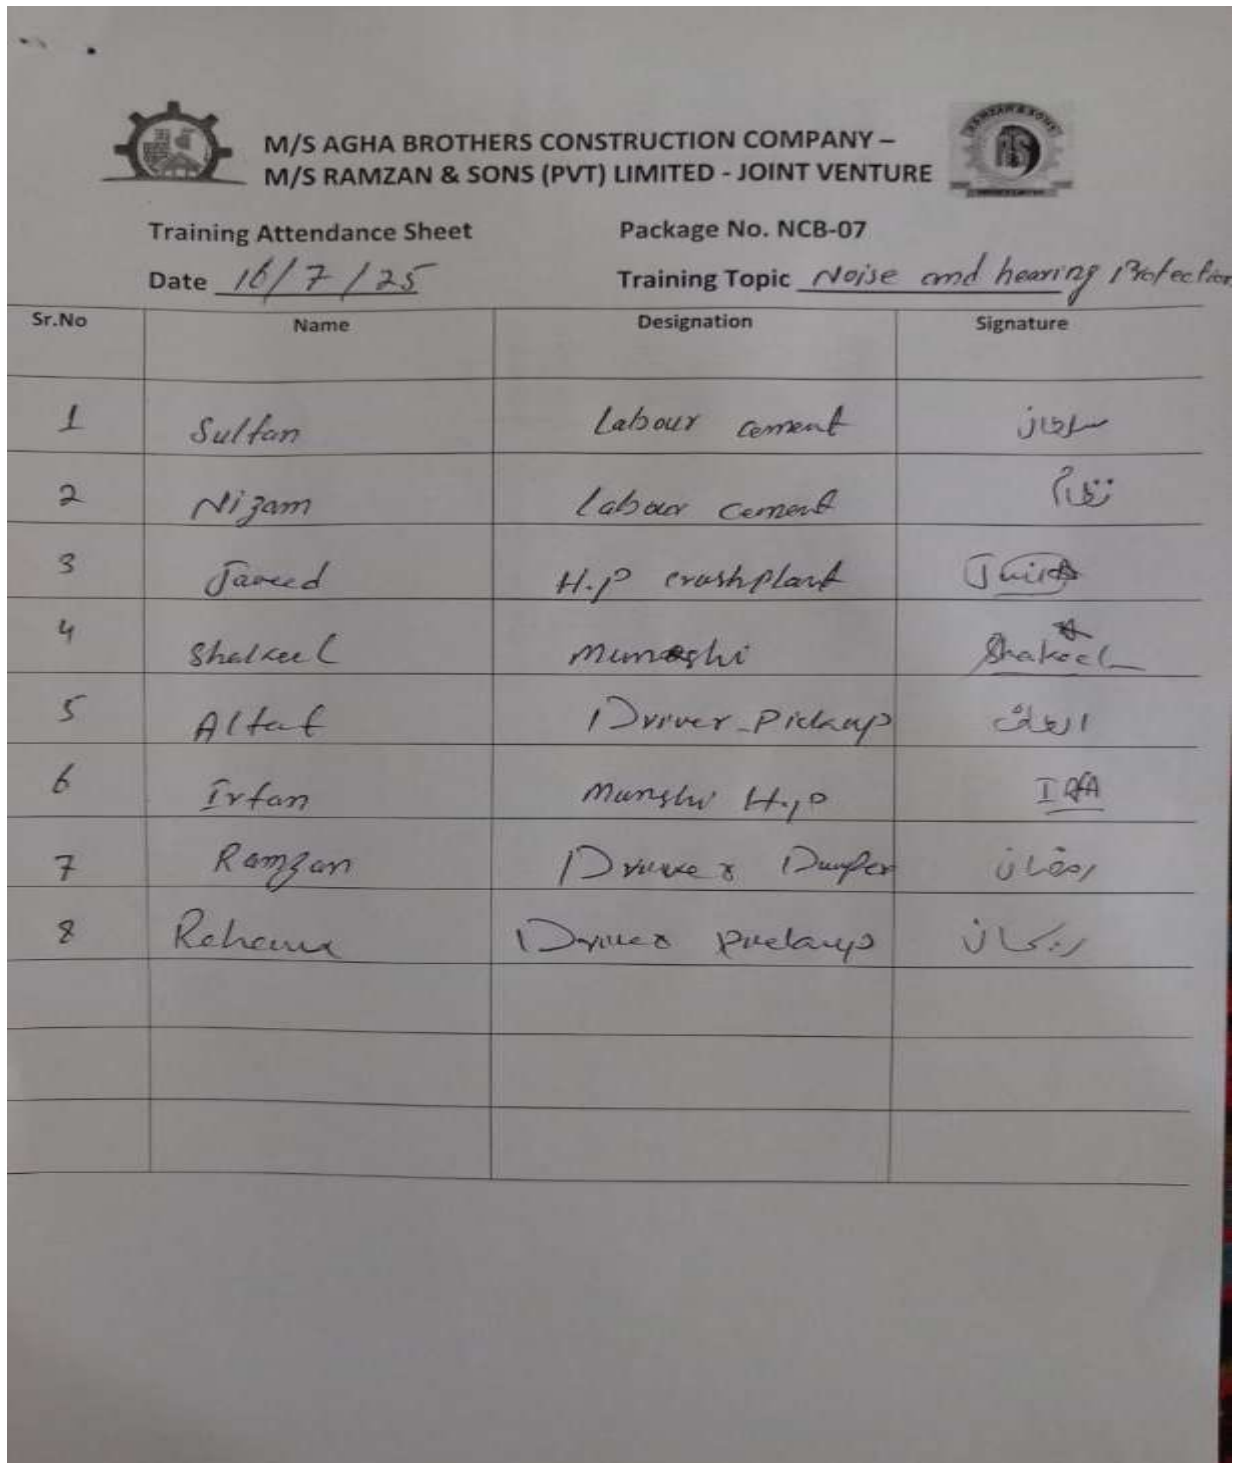 M/S AGHA BROTHERS CONSTRUCTION COMPANY –
M/S RAMZAN & SONS (PVT) LIMITED - JOINT VENTURE
RAMZAN & SONS
Training Attendance Sheet Package No. NCB-07
Date 16/7/25 Training Topic Noise and hearing Protection
Sr.No Name Designation Signature
1 Sultan Labour cement سلطان
2 Nizam Labour cement نظام
3 Javeed H.P crashplant
4 Shakeel Munshi Shakeel
5 Altaf Driver-Pickup الطاف
6 Irfan Munshi H.P
7 Ramzan Driver Dumper رمضان
8 Driver pickup ریحان